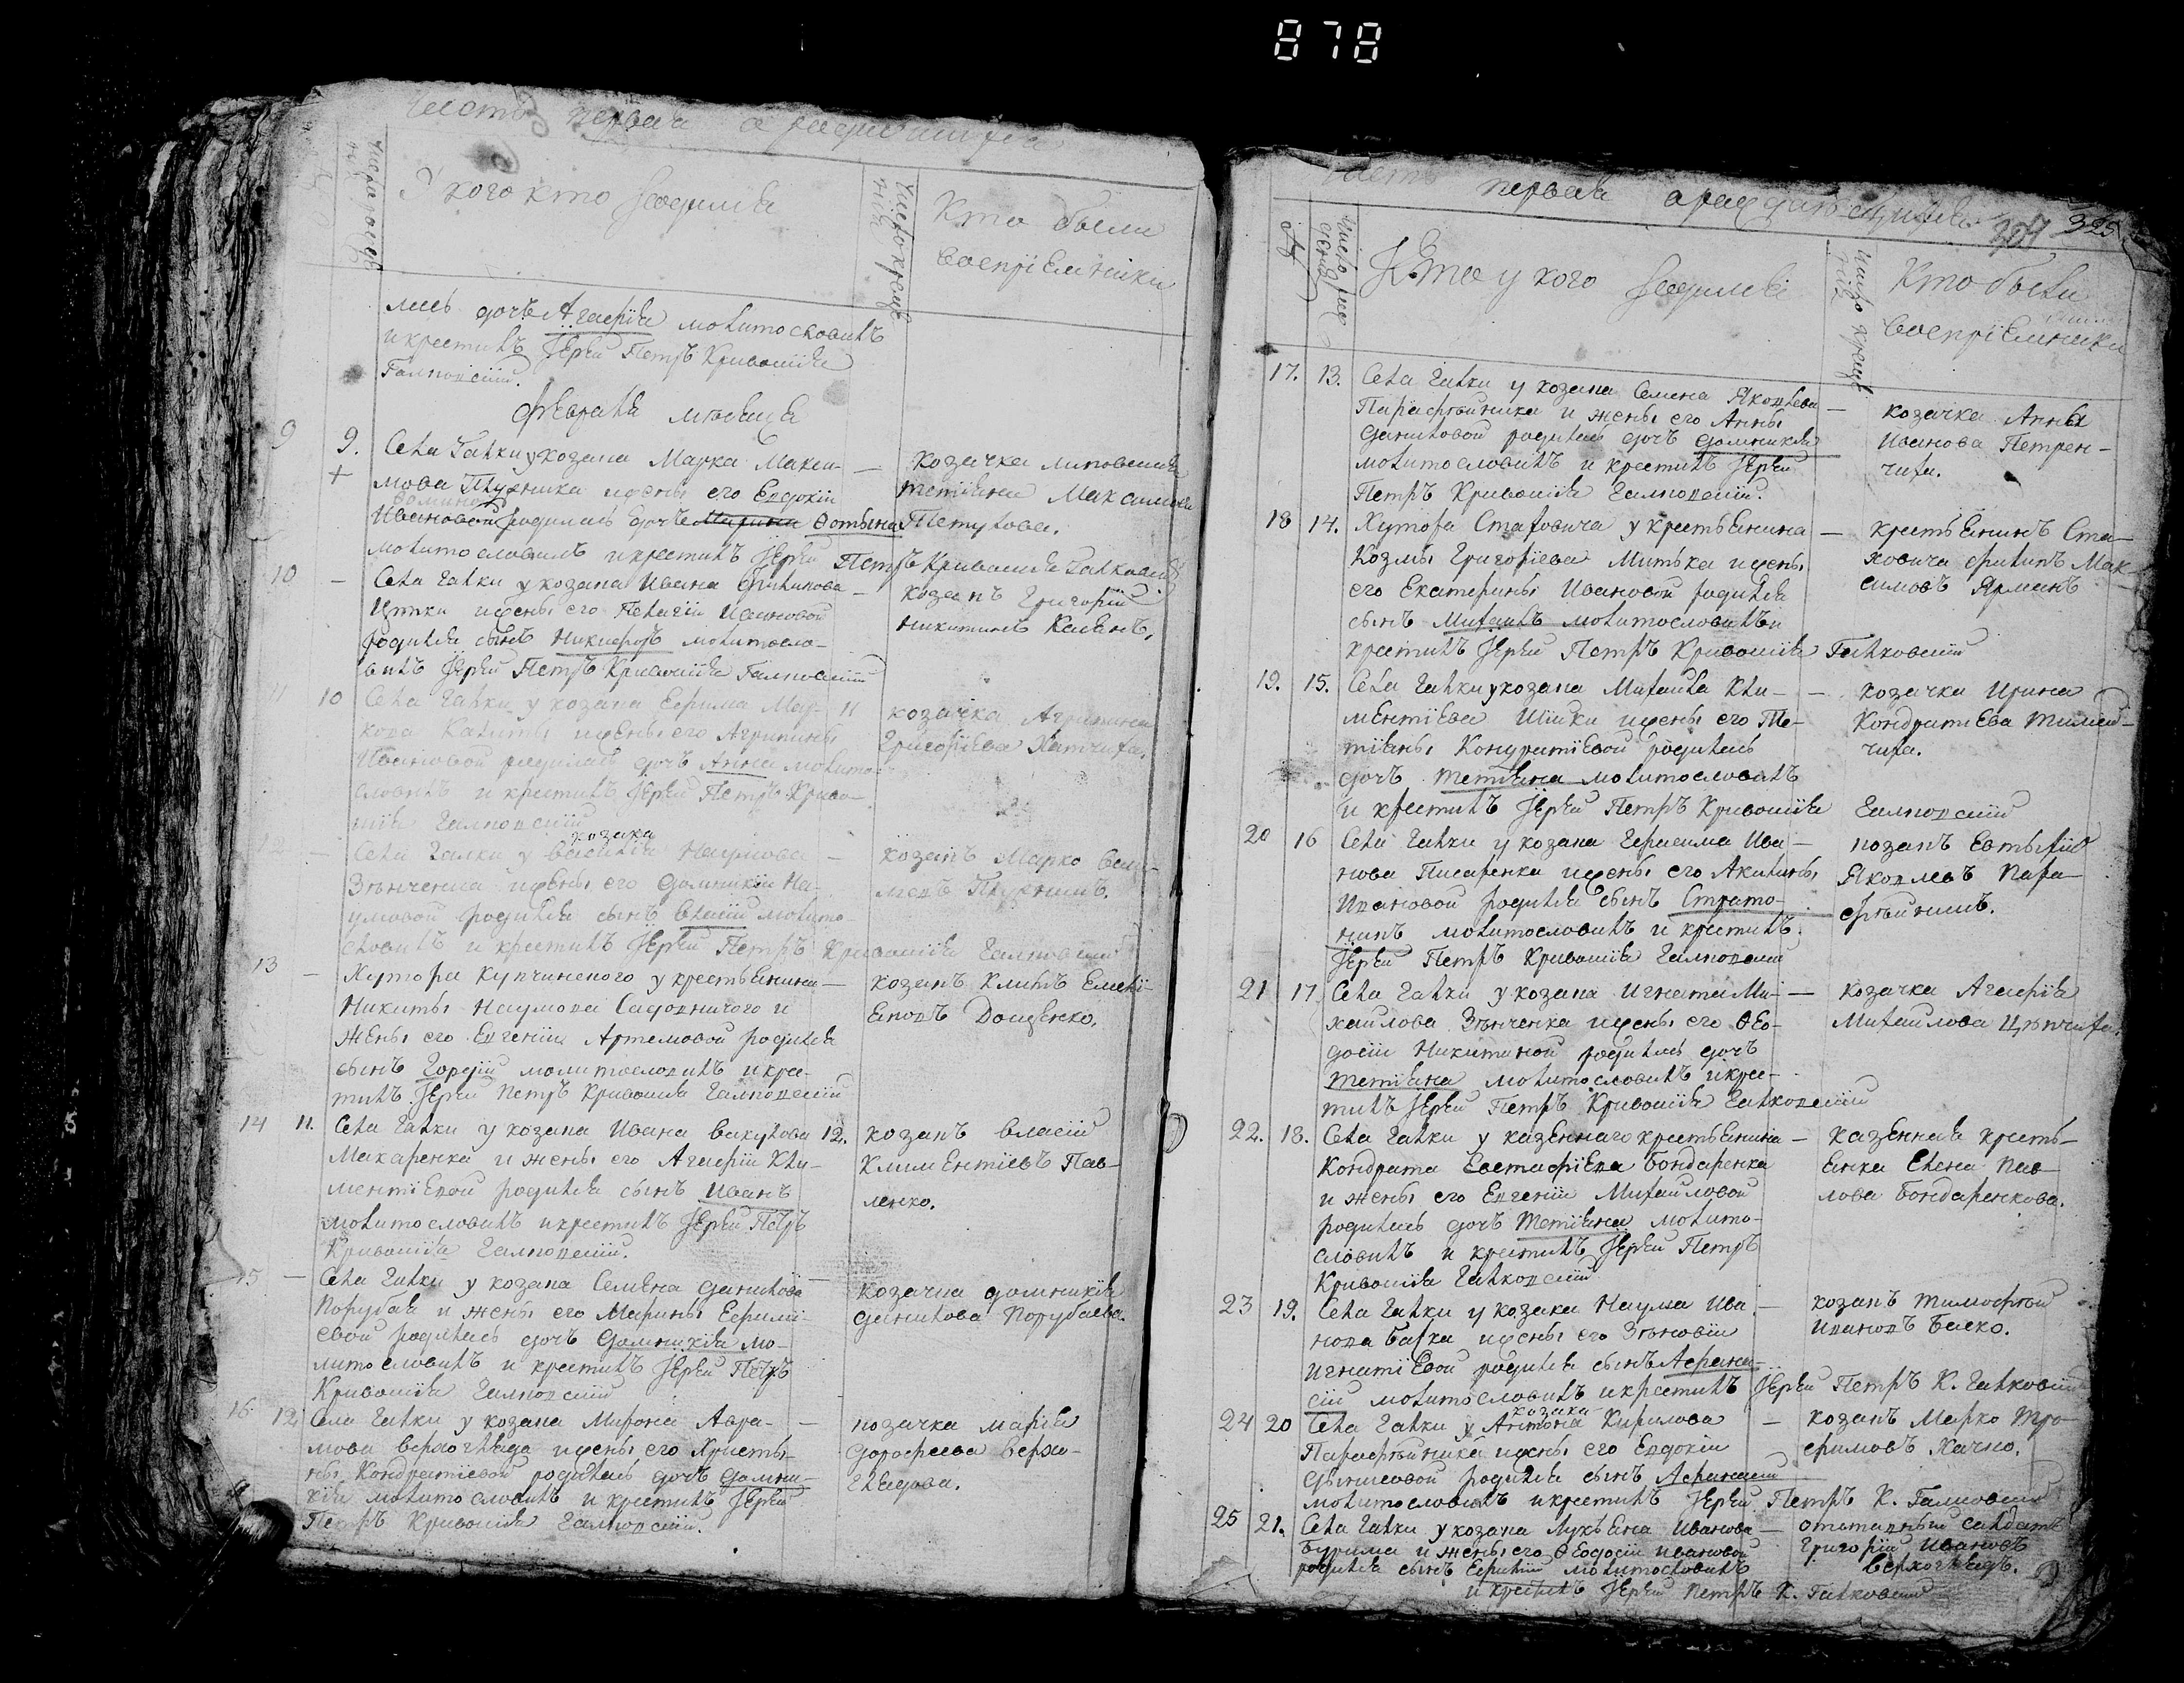 878
Часть первая о раждающихся
Число рожд
У кого кто родился
Число крещенія
Кто были
воспріемники
лась дочъ Агафія молитвословилъ
и крестилъ Іерей Петръ Кривошія
Галковскій.
Февраля мѣсяца
9
9.
Села Галки у козака Марка Макси-
мова Плужника и жены его Евдокіи
Ивановой родилась дочь Марина Фотына
молитвословилъ и крестилъ Іерей Петръ Кривошія Галковскій
козачка
Тетіяна Максимова
Петухова.
10
Села Галки у козака Ивана Филипова
и жены его Пелагіи Ивановой
родился сынъ Никифоръ молитвосло-
вилъ Іерей Петръ Кривошія Галковскій
козакъ Григорій
Никитинъ
10
Села Галки у козака Ефима Мар-
кова Калиты и жены его Агрипины
Ивановой родилась дочъ Анна молитво-
словилъ и крестилъ Іерей Петръ Криво-
шія Галковскій
11
козачка Агрипина
Григоріева
козака
Села Галки у Василія Наумова
Зѣнченка и жены его Домникіи На-
умовой родился сынъ Власій молитво-
словилъ и крестилъ Іерей Петръ Кривошія Галковскій
козакъ Марко
Плужникъ.
13
Хутора Купчинского у крестьянина
Никиты Наумова Садовничого и
жены его Евгеніи Артемовой родился
сынъ Гордій молитвословилъ и крес-
тилъ Іерей Петръ Кривошія Галковскій
козакъ Климъ Емелі-
яновъ Доценко.
14
11.
Села Галки у козака Ивана Вакулова
Макаренка и жены его Агафіи Кли-
ментіевой родился сынъ Иванъ
молитвословилъ и крестилъ Іерей Петръ
Кривошія Галковскій.
12.
козакъ Власій
Климентіевъ Пав-
ленко.
15
Села Галки у козака Семена Данилова
Порубая и жены его Марины Ефимі-
евой родилась дочъ Домникія мо-
литвословилъ и крестилъ Іерей Петръ
Кривошія Галковскій
козачка Домникія
Данилова Порубаева.
16
12.
Села Галки у козака Мирона Авра-
мова Верхогляда и жены его Христи-
ны Кондратіевой родилась дочъ Домни-
кія молитвословилъ и крестилъ Іерей
Петръ Кривошія Галковскій.
козачка Марія
Дорофеева Верхо-
глядова.
Часть первая о раждающихся
325
№
Кто у кого родился
Число крещ
Кто были
воспріемники
17.
13.
Села Галки у козака Семена Яковлева
Парафѣйника и жены его Анны
Даниловой родилась дочъ Домникія
молитвословилъ и крестилъ Іерей
Петръ Кривошія Галковскій.
козачка Анна
Иванова Петрен-
чиха.
18
14.
Хутора Стаховича у крестьянина
Козмы Григоріева Митька и жены
его Екатерины Ивановой родился
сынъ Михаилъ молитвословилъ и
крестилъ Іерей Петръ Кривошія Галковскій
крестьянинъ Ста-
ховича Филипъ Мак
симовъ Ярманъ
19.
15.
Села Галки у козака Михаила Кли-
ментіева Шійки и жены его Те-
тіяны Кондратіевой родилась
дочъ Тетіяна молитвословилъ
и крестилъ Іерей Петръ Кривошія Галковскій
козачка Ирина
Кондратіева
чиха.
20
16
Села Галки у козака Герасима Ива-
нова Писаренка и жены его Акилины
Ивановой родился сынъ Страто-
никъ молитвословилъ и крестилъ
Іерей Петръ Кривошія Галковскій
козакъ Евтыхій
Яковлевъ Пара-
фѣйникъ.
21
17
Села Галки у козака Игната Ми-
хайлова Зѣнченка и жены его Ѳео-
досіи Никитиной родилась дочъ
Тетіяна молитвословилъ и крес-
тилъ Іерей Петръ Кривошія Галковскій
козачка Агафія
Михайлова
22.
18.
Села Галки у казеннаго крестьянина
Кондрата Евстафіева Бондаренка
и жены его Евгеніи Михайловой
родилась дочъ Тетіяна молитво-
словилъ и крестилъ Іерей Петръ
Кривошія Галковскій
казенная кресть-
янка Елена Пав-
лова Бондаренкова.
23
19.
Села Галки у козака Наума Ива-
нова и жены его Зѣновіи
Игнатіевой родился сынъ Афана-
сій молитвословилъ и крестилъ Іерей Петръ К. Галковскій
козакъ Тимофѣй
Ивановъ
24
20
козака
Села Галки у Антона Кирилова
Парафѣйника и жены его Евдокіи
Денисовой родился сынъ Афанасій
молитвословилъ и крестилъ Іерей Петръ К. Галковскій
козакъ Марко Тро-
фимовъ Хачко.
25
21.
Села Галки у козака Лукьяна Иванова
Бурима и жены его Ѳеодосіи Ивановой
родился сынъ молитвословилъ
и крестилъ Іерей Петръ К. Галковскій
отставный салдатъ
Григорій Ивановъ
Верхоглядъ.